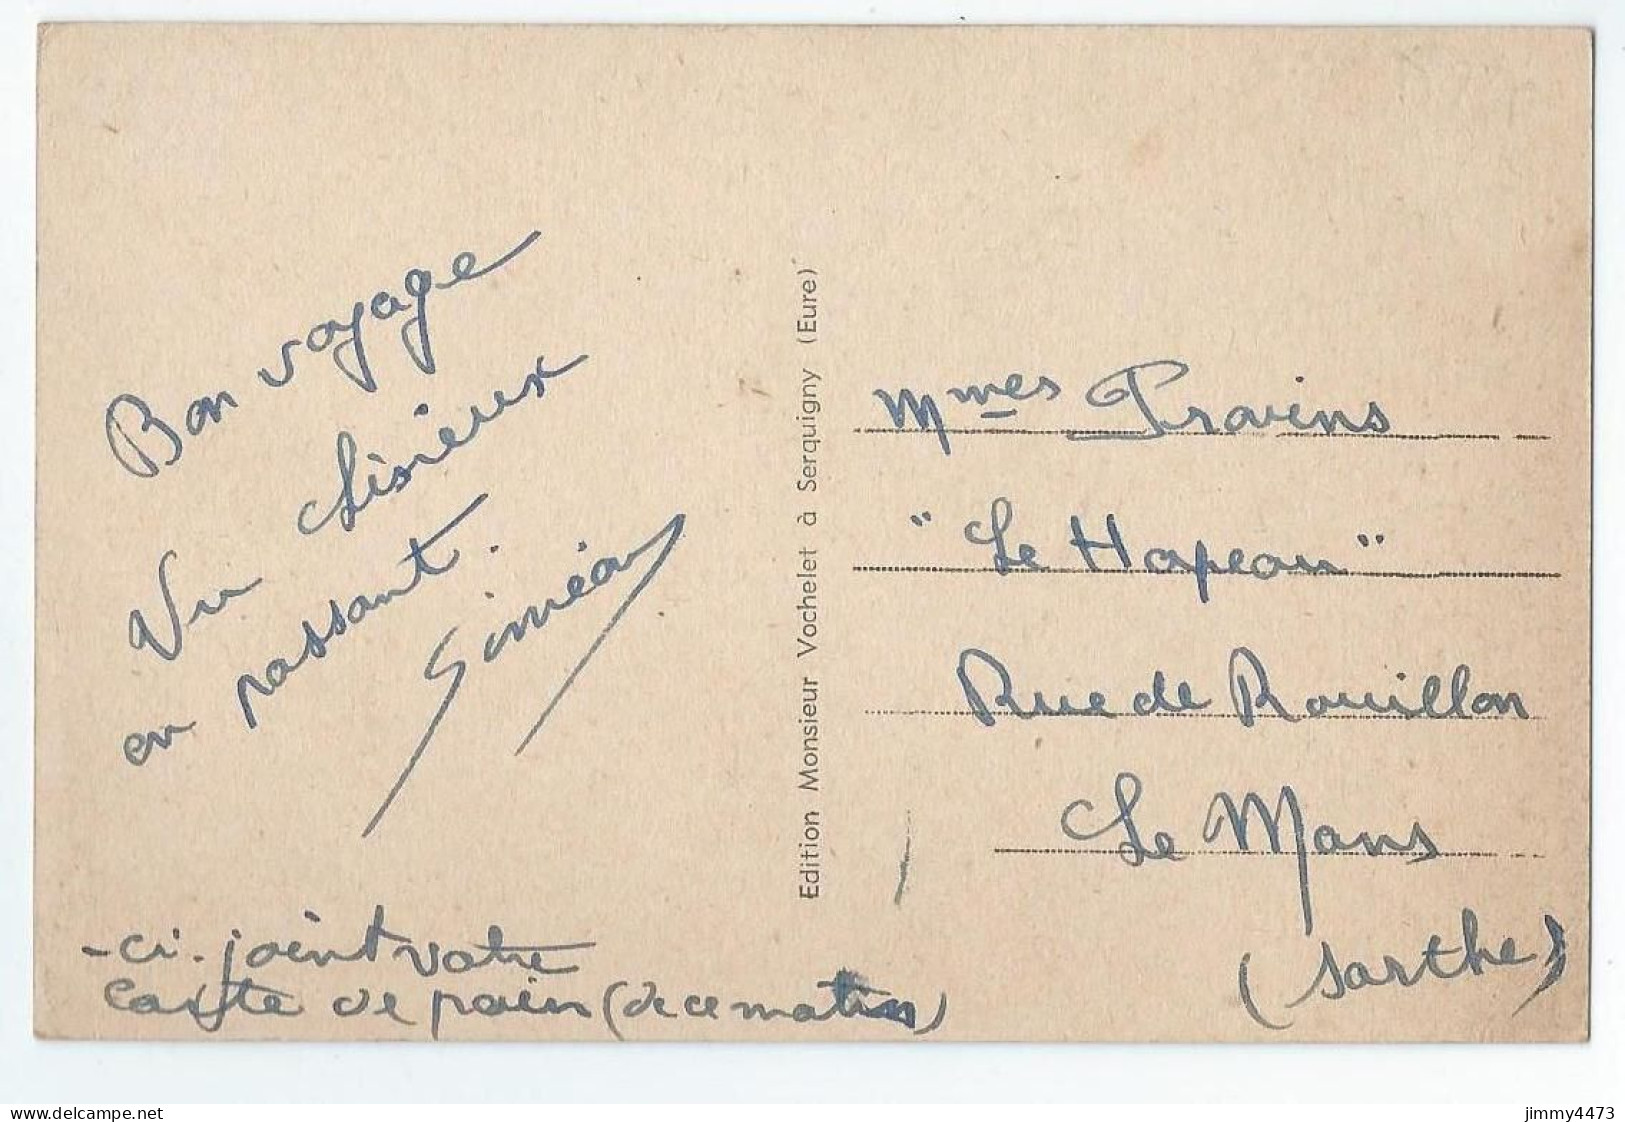 Bon voyage
Vu Lisieux
en passant.
Siméon
- ci-joint votre
carte de pain (de ce matin)
Edition Monsieur Vochelet à Serquigny (Eure)
Mmes Provins
"Le Hapeau"
Rue de Rouillon
Le Mans
(Sarthe)
jimmy4473